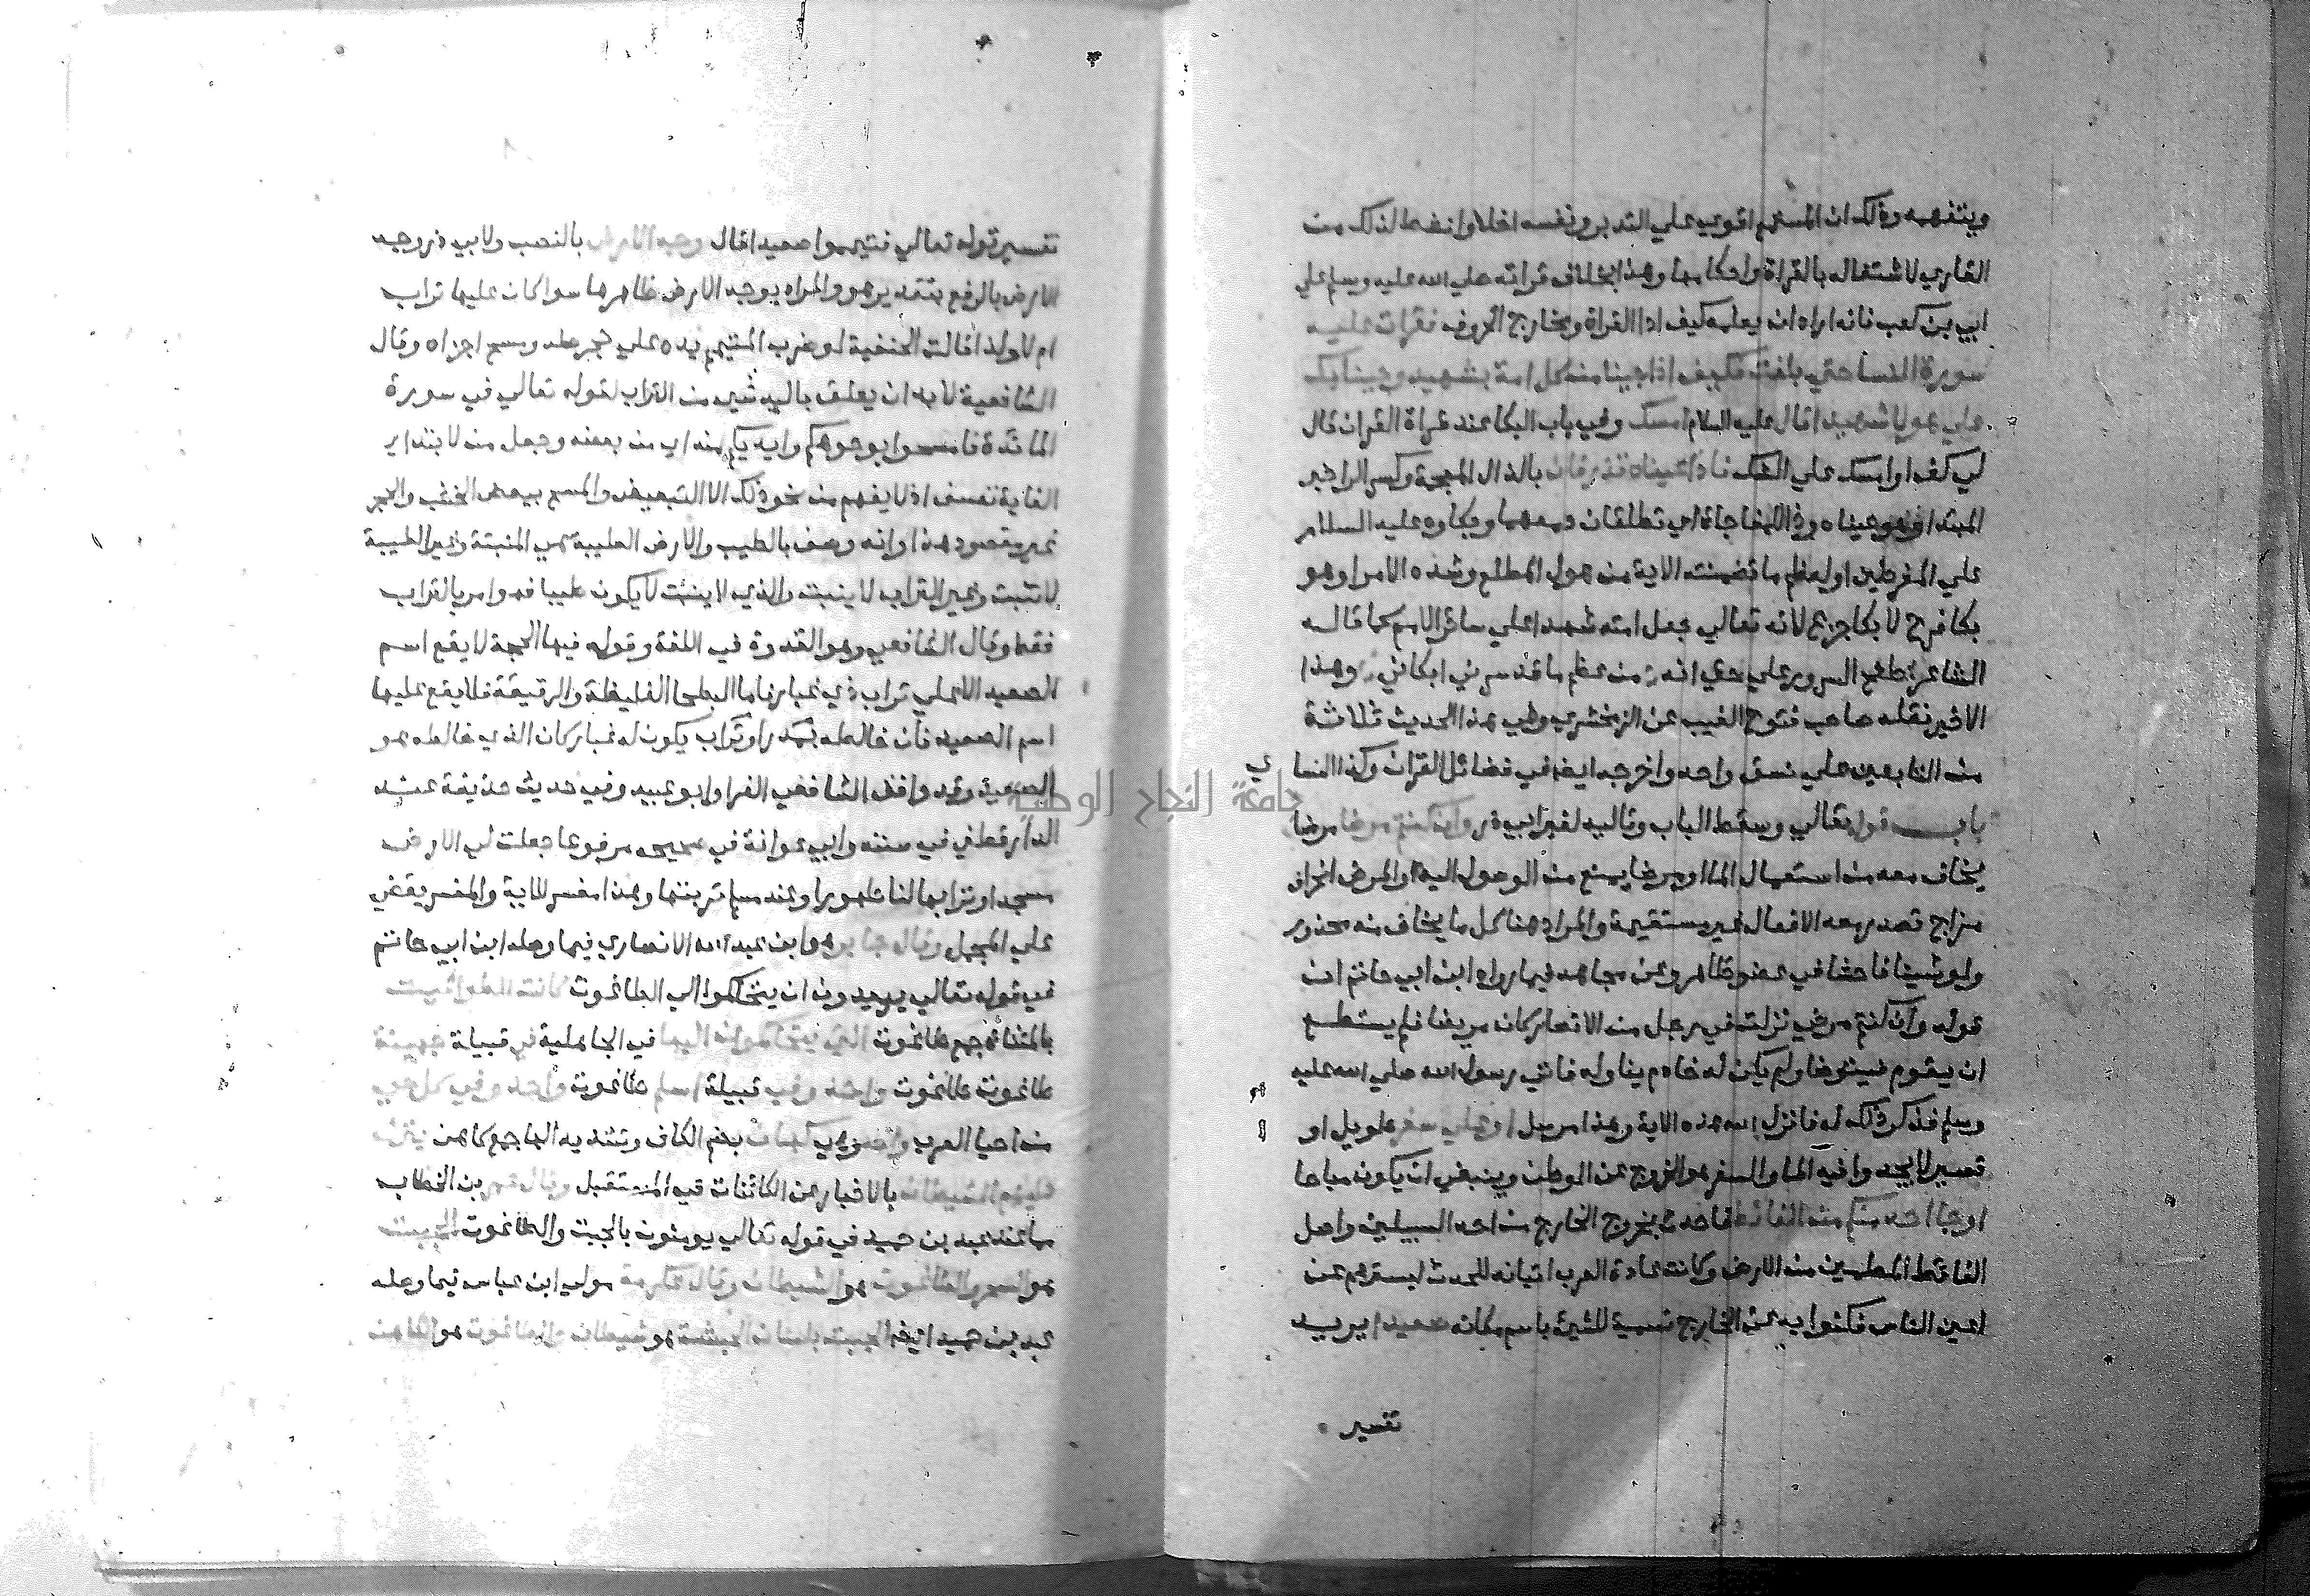 ويتفهمه وذلك ان المستمع اقوي علي التدبر ونفسه اخلا وانشط لذلك من
القاري لاشتغاله بالقراة واحكامها وهذا بخلاف قراته صلي الله عليه وسلم علي
ابي بن كعب فانه اراد ان يعلمه كيف ادا القراة ومخارج الحروف فقرات عليه
سورة النسا حتي بلغت فكيف اذا جينا من كل امة بشهيد وجينا بك
علي هولا شهيدا قال عليه السلام امسك وفي باب البكا عند قراة القران قال
لي كف او امسك علي الشك فاذا عيناه تذرفان بالذال المعجمة وكسر الرا خبر
المبتدا وهو عيناه واذا للمفاجاة اي تطلقان دمعهما وبكاوه عليه السلام
علي المفرطين او لعظم ما تضمنته الاية من هول المطلع وشده الامر او هو
بكا فرح لا بكا جزع لانه تعالي جعل امته شهدا علي سائر الامم كما قال
الشاعر طفح السرور علي حتي انه من عظم ما قد سرني ابكاني وهذا
الاخير نقله صاحب فتوح الغيب عن الزمخشري وفي هذا الحديث ثلاثة
من التابعين علي نسق واحد واخرجه ايضا في فضائل القران وكذا النساي
باب قوله تعالي وسقط الباب وتاليه لغير ابي ذر وان كنتم مرضا مرضا
يخاف معه من استعمال الما او مرضا يمنع من الوصول اليه والمرض انحراف
مزاج تصدر معه الافعال غير مستقيمة والمراد هنا كل ما يخاف منه محذور
ولو شينا فاحشا في عضو ظاهر وعن مجاهد فيما رواه ابن ابي حاتم ان
قوله وان كنتم مرضي نزلت في رجل من الانصار كان مريضا فلم يستطع
ان يقوم فيتوضا ولم يكن له خادم يناوله فاتي رسول الله صلي الله عليه
وسلم فذكر ذلك له فانزل الله هذه الاية وهذا مرسل او علي سفر طويل او
قصير لا يجدوا فيه الما والسفر هو الخروج عن الوطن وينبغي ان يكون مباحا
او جا احد منكم من الغائط فاحدث بخروج الخارج من احد السبيلين واصل
الغائط المطمين من الارض وكانت عادة العرب اتيانه للحدث ليسترهم عن
اعين الناس فكنوا به عن الخارج تسمية للشيء باسم مكانه صعيدا يريد
تفسير
تفسير قوله تعالي فتيمموا صعيدا قال وجه الارض بالنصب ولابي ذر وجه
الارض بالرفع بتقدير هو والمراد بوجه الارض ظاهرها سوا كان عليها تراب
ام لا ولذا قالت الحنفية لو ضرب المتيمم يده علي حجر صلد ومسح اجزاه وقال
الشافعية لابد ان يعلق باليد شيء من التراب لقوله تعالي في سورة
المائدة فامسحوا بوجوهكم وايديكم منه اي من بعضه وجعل من لابتداء
الغاية تعسف اذ لا يفهم من نحو ذلك الا التبعيض والمسح ببعض الخشب والحجر
غير مقصود هذا وانه وصف بالطيب والارض الطيبة هي المنبتة وغير الطيبة
لا تنبت وغير التراب لا ينبت والذي لا ينبت لا يكون طيبا فهو امر بالتراب
فقط وقال الشافعي وهو القدوة في اللغة وقوله فيها الحجة لا يقع اسم
الصعيد الا علي تراب ذي غبار فاما البطحا الغليظة والرقيقة فلا يقع عليها
اسم الصعيد فان خالطه تراب يكون له غبار كان الذي خالطه هو
الصعيد وقد وافق الشافعي الفرا وابو عبيد وفي حديث حذيفة عند
الدارقطني في سننه وابي عوانة في صحيحه مرفوعا جعلت لي الارض
مسجدا وترابها لنا طهورا وعند مسلم تربتها وهذا مفسر للاية والمفسر يقضي
علي المجمل وقال جابر هو ابن عبد الله الانصاري فيما وصله ابن ابي حاتم
في قوله تعالي يريدون ان يتحاكموا الي الطاغوت كانت الطواغيت
بالمثناة جمع طاغوت التي يتحاكمون اليها في الجاهلية في قبيلة جهينة
طاغوت طاغوت واحد وفي قبيلة اسلم طاغوت واحد وفي كل حي
من احيا العرب واحد وهي كهان بضم الكاف وتشديد الها جمع كاهن ينزل
عليهم الشيطان بالاخبار عن الكائنات في المستقبل وقال عمر بن الخطاب
مما عند عبد بن حميد في قوله تعالي يومنون بالجبت والطاغوت الجبت
هو السحر والطاغوت هو الشيطان وقال عكرمة مولي ابن عباس فيما وصله
عبد بن حميد ايضا الجبت بلسان الحبشة هو شيطان والطاغوت هو الكاهن
جامعة النجاح الوطنية